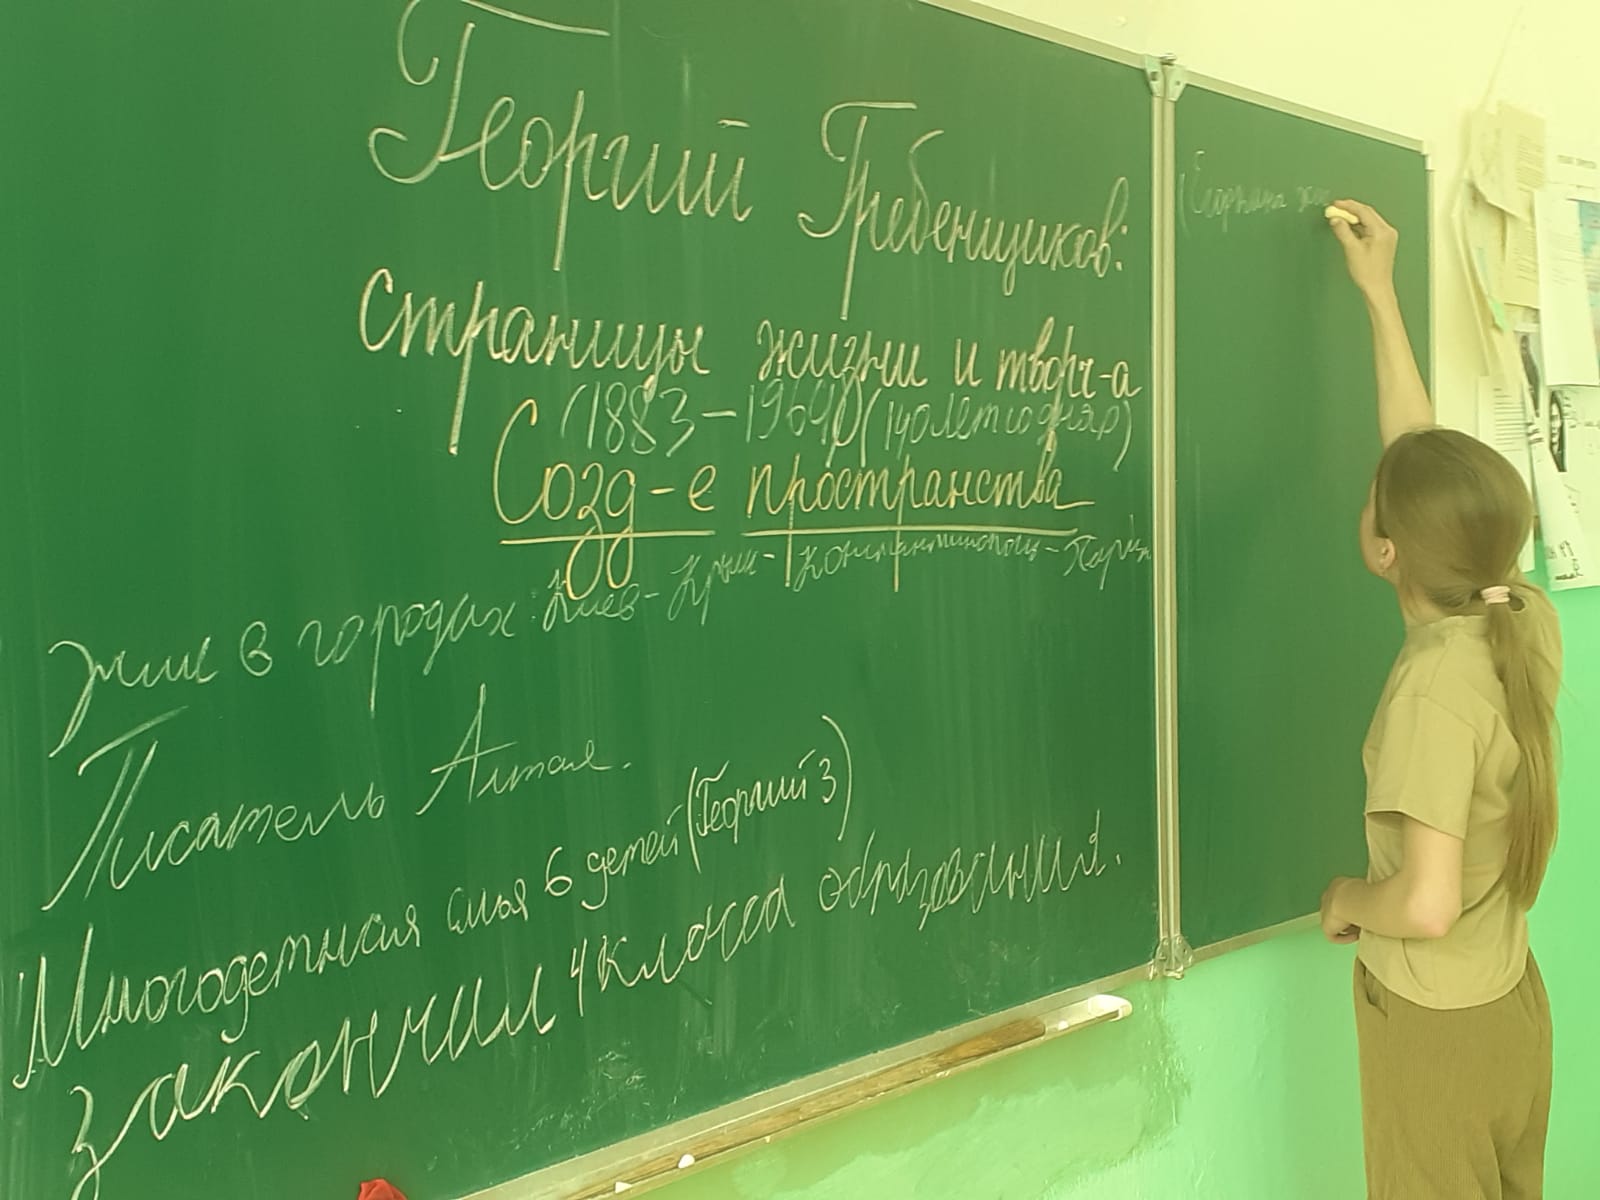 Георгий Гребенщиков:
страницы жизни и творч-а
(1883-1964) (140 лет со дня р)
Созд-е пространства
Жил в городах: Киев - Крым - Константинополь - Париж
Писатель Алтая.
Многодетная семья 6 детей (Георгий 3)
закончил 4 класса образования.